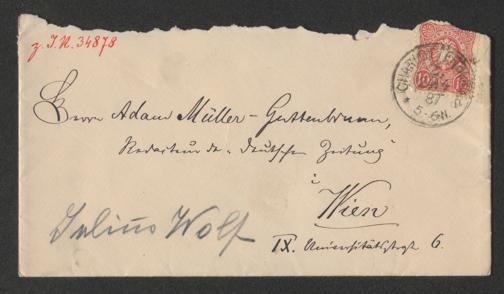 z. I.N. 34878
CHARLOTTENBURG
87
5-6N.
10
Herrn Adam Müller-Guttenbrunn,
Redacteur der „Deutschen Zeitung"
Wien
IX. Universitätsstraße 6.
Julius Wolff